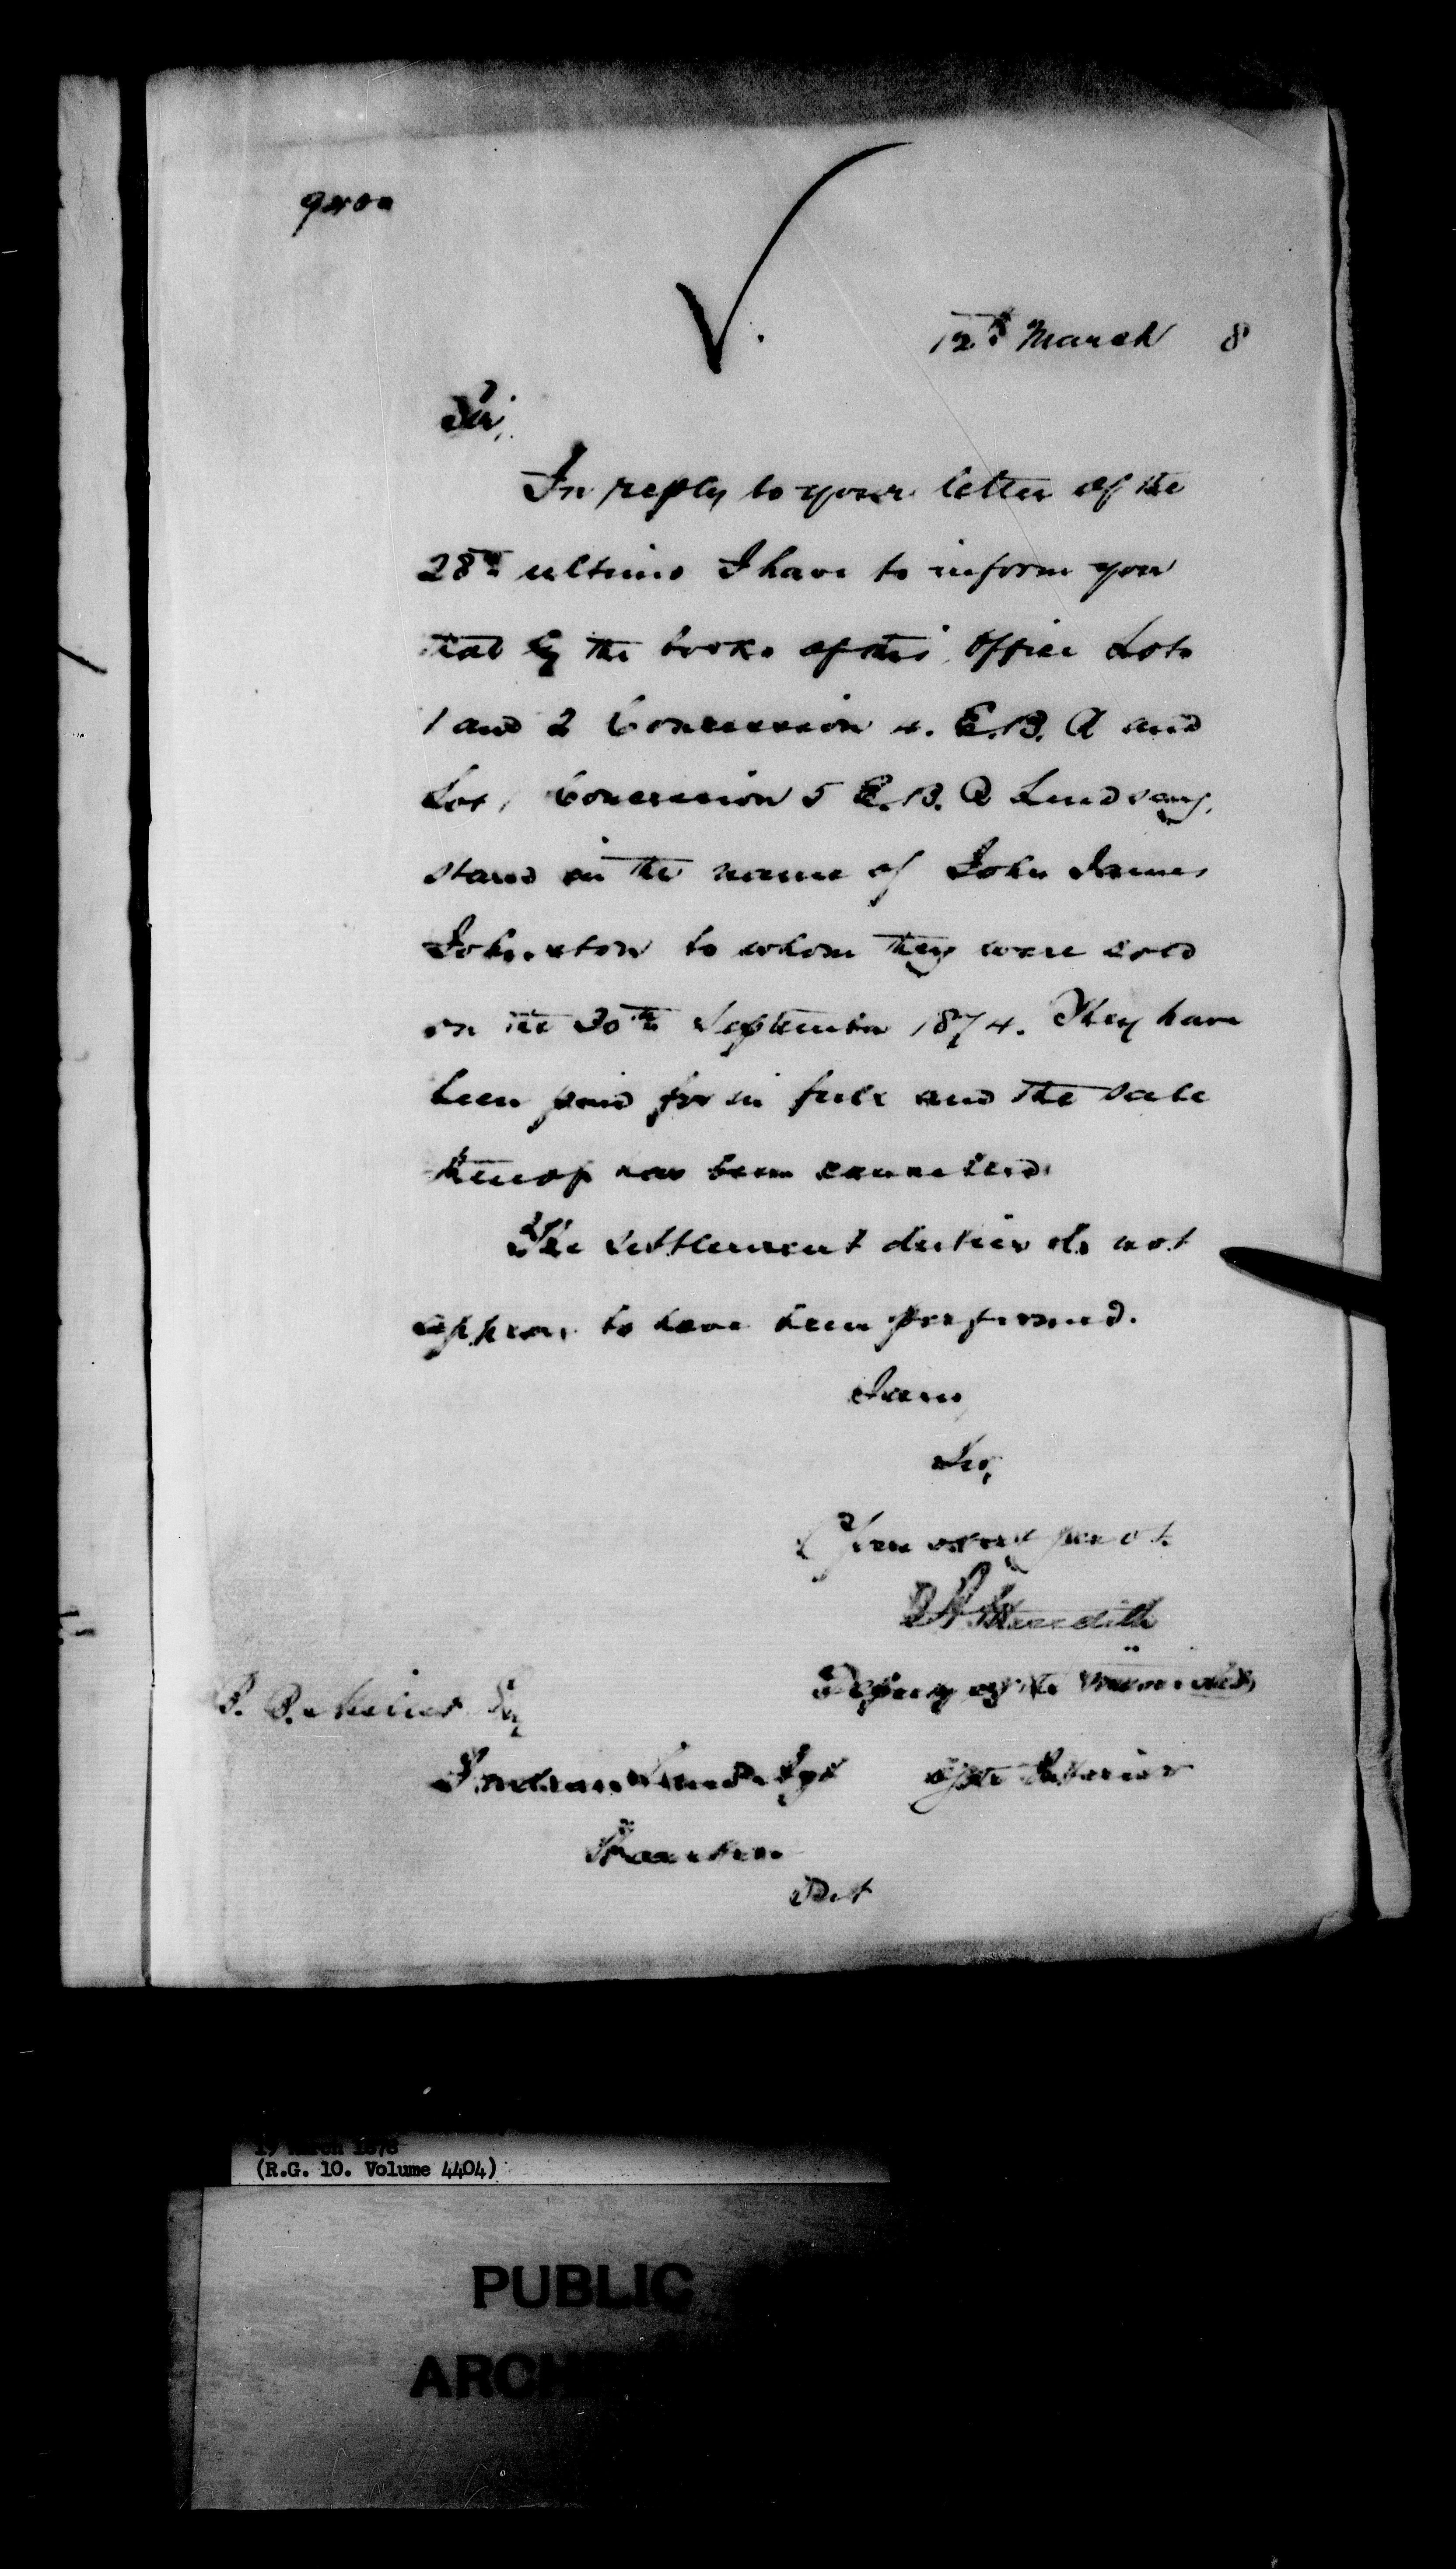 12th March 8
Sir,
In reply to your letter of the
28th ultimo I have to inform you
that by the books of this Office Lots
1 and 2 Concession 4. E.B.R and
Lot 1 Concession 5 E.B.R Lindsay,
stand in the name of John James
Johnston to whom they were sold
on the 30th September 1874. They have
been paid for in full and the sale
thereof has been cancelled.
The Settlement duties do not
appear to have been performed.
I am,
Sir,
Your obedt servt
Meredith
Deputy of the Minister
of the Interior
Esq
Indian Land Agt
Ont
March 1878
(R.G. 10. Volume 4404)
PUBLIC
ARCH